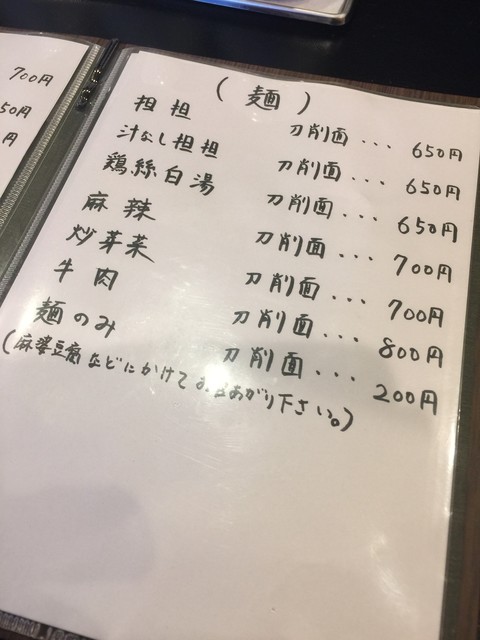 700円
50円
円
(麺)
担担 刀削面... 650円
汁なし担担 刀削面... 650円
鶏絲白湯 刀削面... 650円
麻辣 刀削面... 700円
炒芽菜 刀削面... 700円
牛肉 刀削面... 800円
麺のみ 刀削面... 200円
(麻婆豆腐などにかけておめしあがり下さい。)